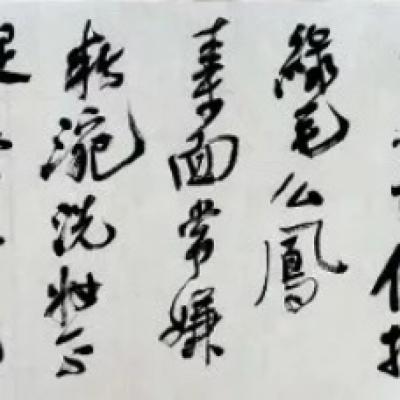 綠毛么鳳
素面常嫌
粉涴洗妝不